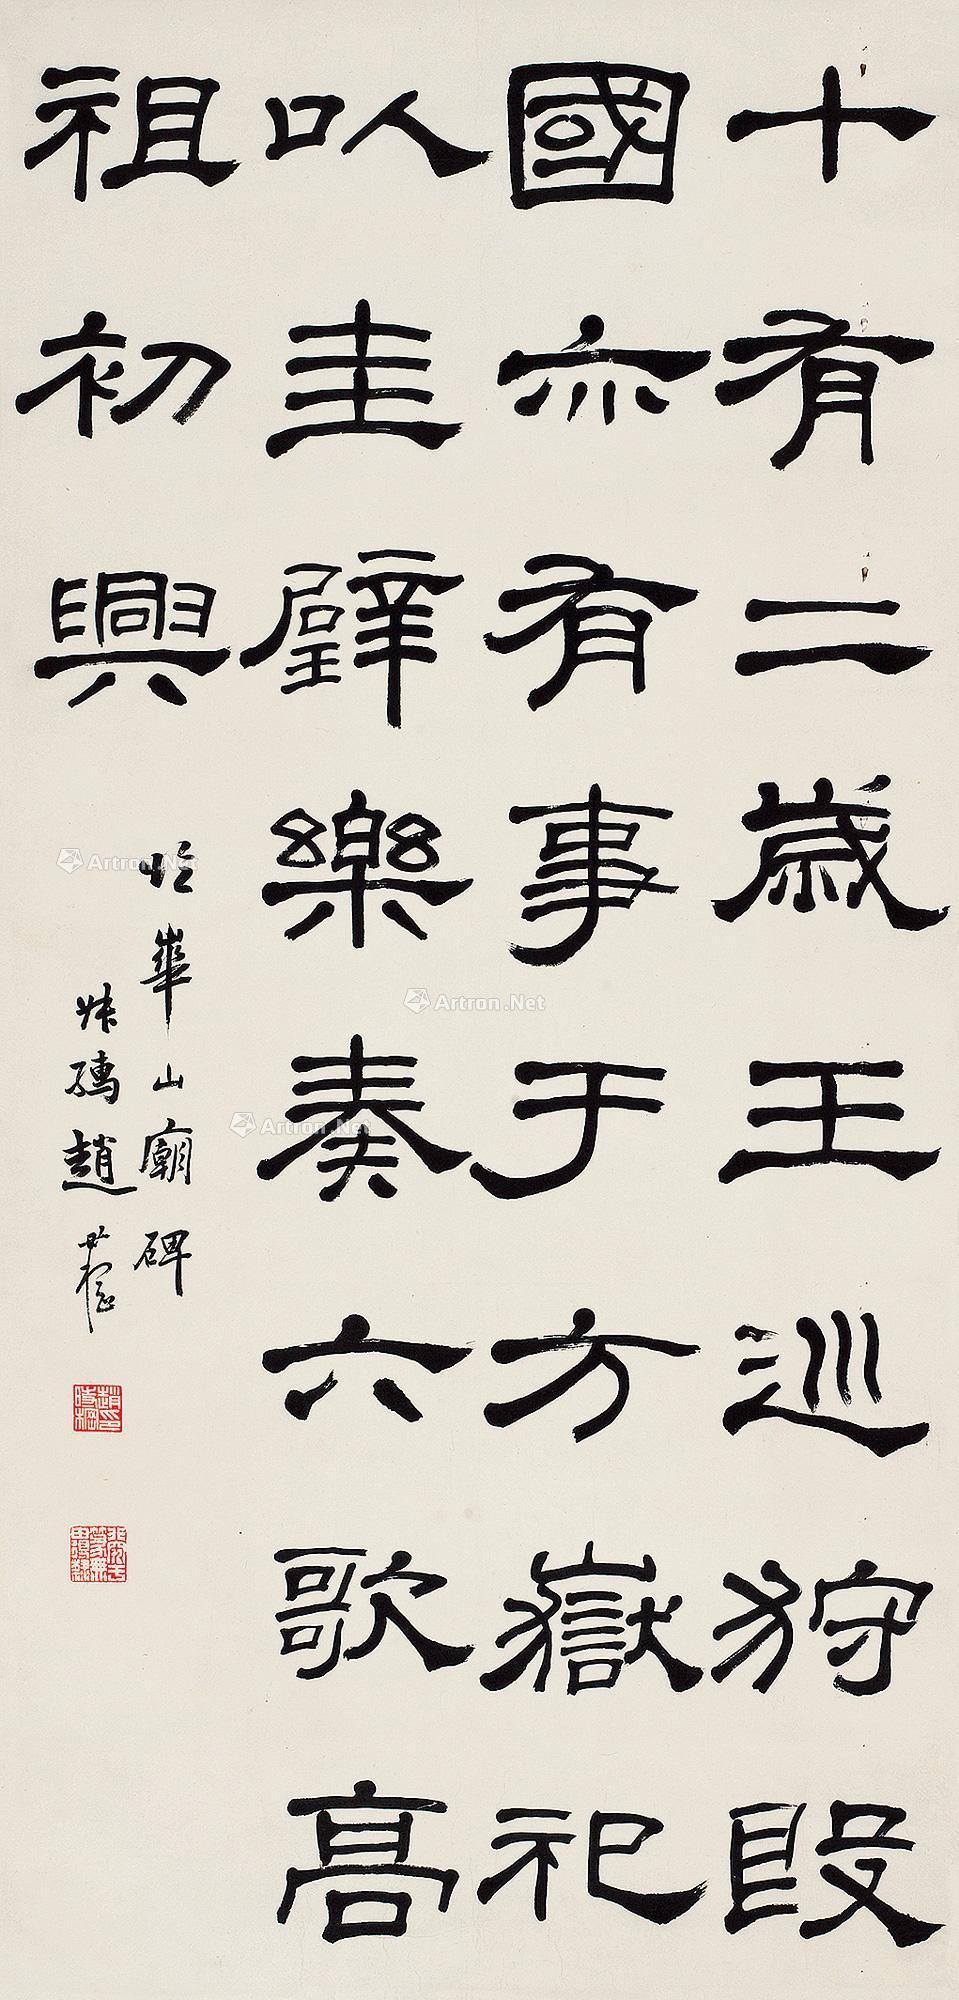 十有二歲王巡狩殷
國亦有事于方嶽祀
以圭璧樂奏六歌高
祖初興
臨華山廟碑
叔孺趙時棡
趙時棡印
Artron.Net
Artron.Net
Artron.Net